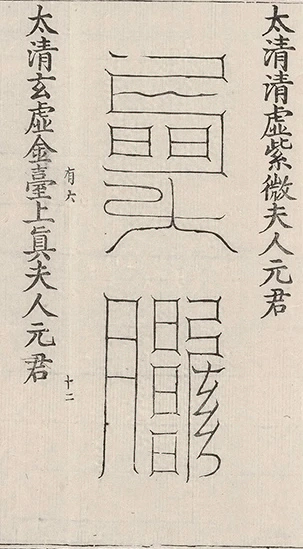 太清清虛紫微夫人元君
太清玄虛金臺上真夫人元君
有六
十二